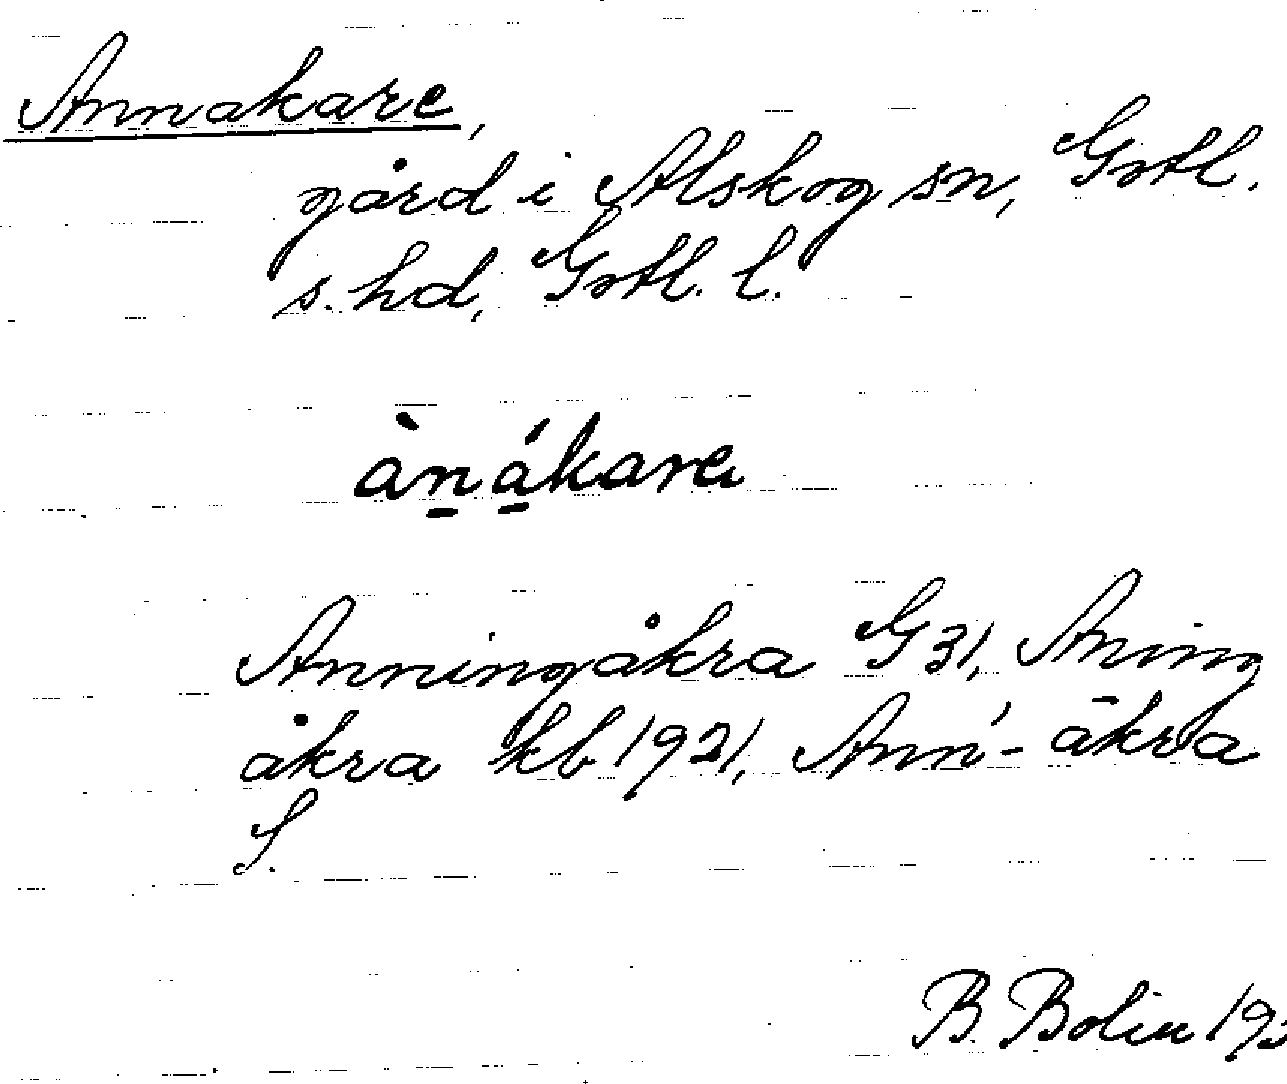 Annakare,
gård i Alskog sn, Gotl.
s. hd, Gotl. l.
ànákare
Anningåkra G 31, Aning
åkra kb 1921, Ann'- ākra
S.
B. Bolin 193